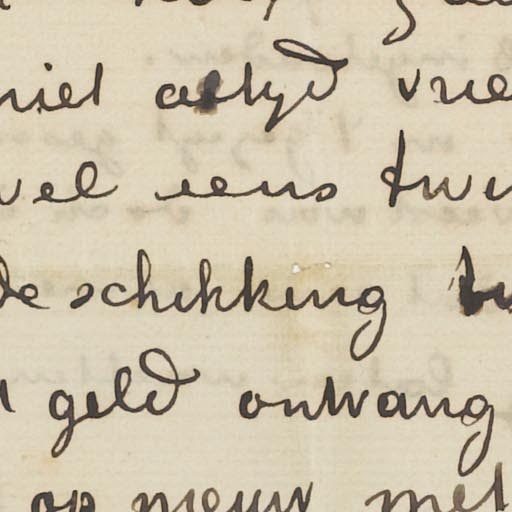 niet altyd vrie
wel eens twi
de schikking
geld ontvang
op nieuw met